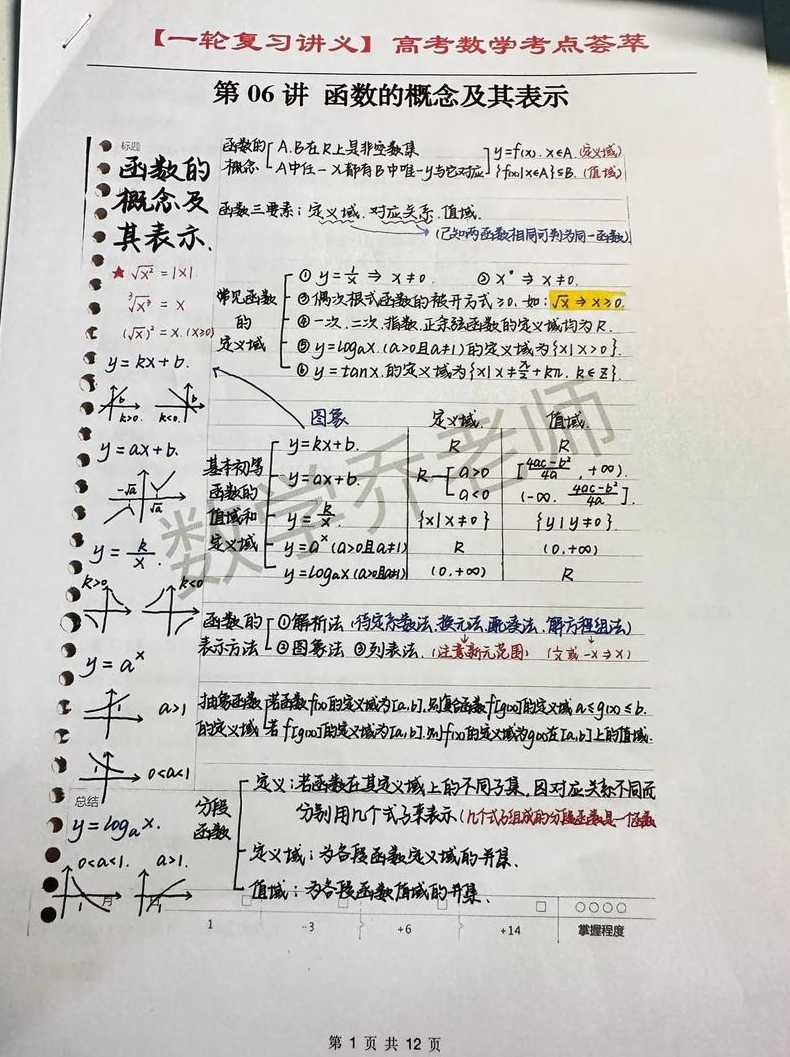 【一轮复习讲义】高考数学考点荟萃
第 06 讲 函数的概念及其表示
标题
函数的
概念及
其表示.
★ √x² = |x|
³√x³ = x
(√x)² = x. (x≥0)
y = kx + b.
b
b
k>0. k<0.
y = ax + b.
-√a
√a
y = k/x.
k>0 k<0
y = aˣ
1
a>1
1
0<a<1
总结
y = logₐx.
0<a<1. a>1.
1
1
函数的概念
A.B在R上是非空数集
A中任一x都有B中唯一y与它对应
y=f(x). x∈A. (定义域)
{f(x)|x∈A}⊆B. (值域)
函数三要素: 定义域. 对应关系. 值域.
(已知两函数相同可判为同一函数)
常见函数
的
定义域
① y = 1/x ⇒ x≠0. ② x⁰ ⇒ x≠0.
③ 偶次根式函数的被开方式≥0. 如: √x ⇒ x≥0.
④ 一次. 二次. 指数. 正余弦函数的定义域均为R.
⑤ y=logₐx. (a>0且a≠1)的定义域为{x|x>0}.
⑥ y=tanx. 的定义域为{x|x≠π/2+kπ. k∈Z}.
图象 定义域. 值域.
基本初等
函数的
值域和
定义域
y=kx+b. R R
y=ax+b. R a>0 [4ac-b²/4a, +∞).
a<0 (-∞. 4ac-b²/4a].
y = k/x. {x|x≠0} {y|y≠0}.
y=aˣ (a>0且a≠1) R (0.+∞)
y=logₐx (a>0且a≠1) (0.+∞) R
函数的
表示方法
①解析法 (待定系数法. 换元法. 配凑法. 解方程组法)
②图象法 ③列表法. (注意新元范围) (1/x 或 -x→x)
抽象函数
的定义域
若函数f(x)的定义域为[a,b]. 则复合函数f[g(x)]的定义域a≤g(x)≤b.
若f[g(x)]的定义域为[a,b]. 则f(x)的定义域为g(x)在[a,b]上的值域.
分段
函数
定义: 若函数在其定义域上的不同子集, 因对应关系不同而
分别用几个式子来表示. (几个式子组成的分段函数是一个函数
定义域: 为各段函数定义域的并集.
值域: 为各段函数值域的并集.
月 日
1 -3 +6 +14 掌握程度
数学乔老师
第 1 页 共 12 页